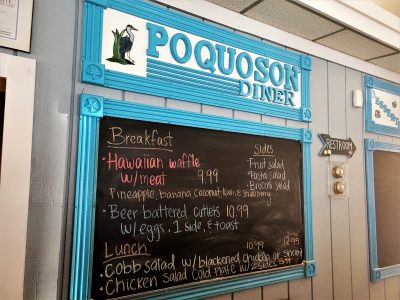 POQUOSON
DINER
Breakfast
• Hawaiian waffle
w/meat 9.99
Pineapple, banana, coconut, Kiwi, & Strawberry
• Beer battered cutlets 10.99
w/eggs, 1 side, & toast
Sides
• Fruit salad
• Pasta salad
• Broccoli salad
Lunch 10.99 12.99
• Cobb salad w/ blackened chicken or shrimp
• Chicken salad Cold Plate w/ 2 sides
RESTROOM